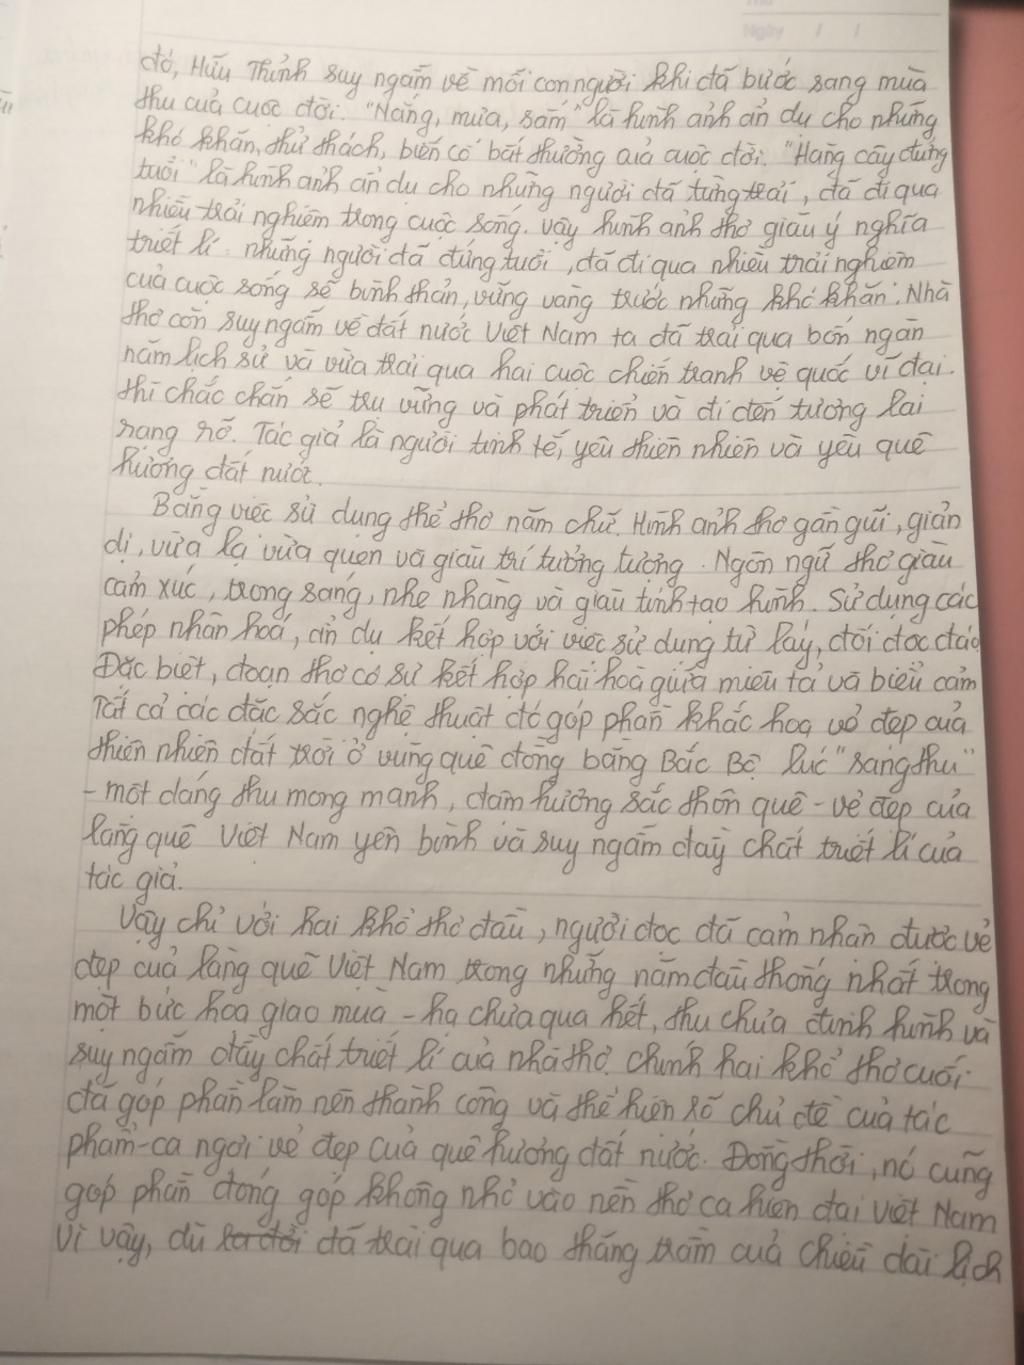 Ngày / /
đó, Hữu Thỉnh suy ngẫm về mỗi con người khi đã bước sang mùa
thu của cuộc đời. "Nắng, mưa, sấm" là hình ảnh ẩn dụ cho những
khó khăn, thử thách, biến cố bất thường của cuộc đời. "Hàng cây đứng
tuổi" là hình ảnh ẩn dụ cho những người đã từng trải, đã đi qua
nhiều trải nghiệm trong cuộc sống. Vậy hình ảnh thơ giàu ý nghĩa
triết lí: những người đã đứng tuổi, đã đi qua nhiều trải nghiệm
của cuộc sống sẽ bình thản, vững vàng trước những khó khăn. Nhà
thơ còn suy ngẫm về đất nước Việt Nam ta đã trải qua bốn ngàn
năm lịch sử và vừa trải qua hai cuộc chiến tranh vệ quốc vĩ đại.
thì chắc chắn sẽ trụ vững và phát triển và đi đến tương lai
rạng rỡ. Tác giả là người tinh tế, yêu thiên nhiên và yêu quê
hương đất nước.
Bằng việc sử dụng thể thơ năm chữ. Hình ảnh thơ gần gũi, giản
dị, vừa lạ vừa quen và giàu trí tưởng tượng. Ngôn ngữ thơ giàu
cảm xúc, trong sáng, nhẹ nhàng và giàu tính tạo hình. Sử dụng các
phép nhân hoá, ẩn dụ kết hợp với việc sử dụng từ láy, đối độc đáo
Đặc biệt, đoạn thơ có sự kết hợp hài hoà giữa miêu tả và biểu cảm
Tất cả các đặc sắc nghệ thuật đó góp phần khắc hoạ vẻ đẹp của
thiên nhiên đất trời ở vùng quê đồng bằng Bắc Bộ lúc "sang thu"
- một dáng thu mong manh, đậm hương sắc thôn quê - vẻ đẹp của
làng quê Việt Nam yên bình và suy ngẫm đầy chất triết lí của
tác giả.
Vậy chỉ với hai khổ thơ đầu, người đọc đã cảm nhận được vẻ
đẹp của làng quê Việt Nam trong những năm đầu thống nhất trong
một bức hoạ giao mùa - hạ chưa qua hết, thu chưa định hình và
suy ngẫm đầy chất triết lí của nhà thơ. chính hai khổ thơ cuối
đã góp phần làm nên thành công và thể hiện rõ chủ đề của tác
phẩm - ca ngợi vẻ đẹp của quê hương đất nước. Đồng thời, nó cũng
góp phần đóng góp không nhỏ vào nền thơ ca hiện đại Việt Nam
Vì vậy, dù đã trải qua bao thăng trầm của chiều dài lịch